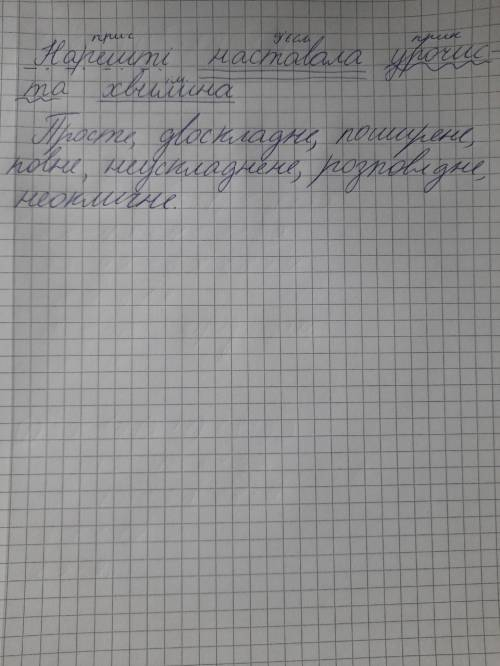 прис дієсл прик
Нарешті наставала урочис-
та хвилина
ім
Просте, двоскладне, поширене,
повне, неускладнене, розповідне,
неоклична.